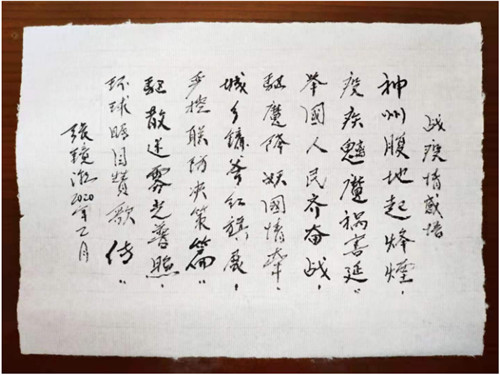 战疫情感悟
神州腹地起烽煙，
疫疾魑魔祸害延。
举國人民齐奋战，
驱魔降妖國情牵。
城乡镇寨红旗展，
控联防决策篇。
驱散迷雾光普照，
环球瞩目赞歌传。
张 2020年二月